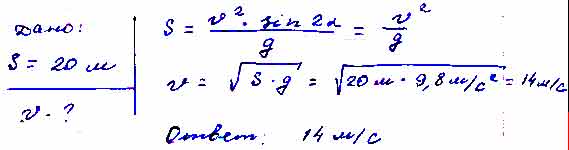 Дано:
S = 20 м
v - ?
S = v² · sin 2α / g = v² / g
v = √(S · g) = √(20 м · 9,8 м/с²) = 14 м/с
Ответ: 14 м/с